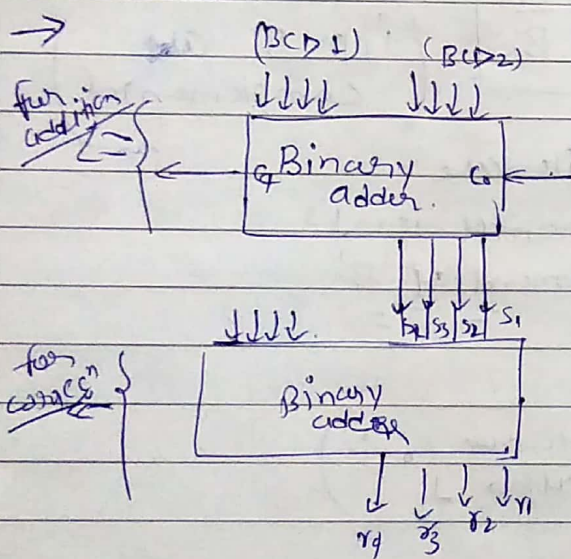 → (BCD1) (BCD2)
for
addition
C4 Binary C0
adder.
S4 S3 S2 S1
for
Binary
adder
r4 r3 r2 r1